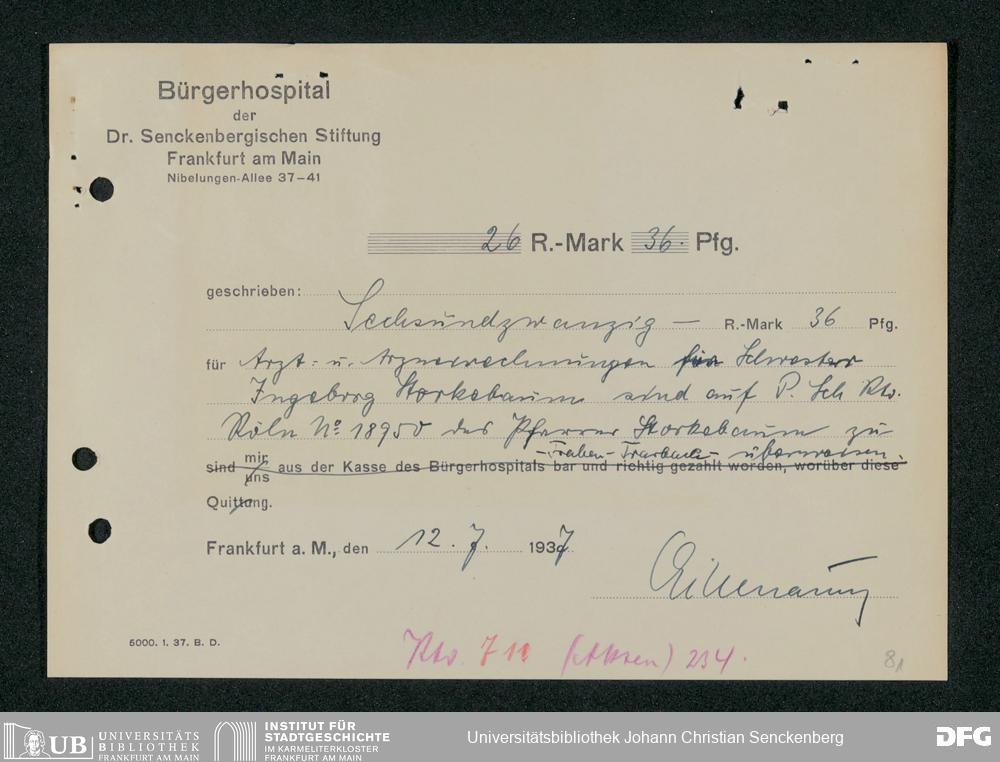 Bürgerhospital
der
Dr. Senckenbergischen Stiftung
Frankfurt am Main
Nibelungen-Allee 37–41
26 R.-Mark 36. Pfg.
geschrieben:
Sechsundzwanzig — R.-Mark 36 Pfg.
für Arzt- u. Arzneirechnungen für Schwester
Ingeborg Storkebaum sind auf P. Sch Kto.
Köln No 18950 des Pfarrer Storkebaum zu
-Traben-Trarbach- überweisen.
sind mir uns aus der Kasse des Bürgerhospitals bar und richtig gezahlt worden, worüber diese
Quittung.
Frankfurt a. M., den 12. 7. 1937
5000. 1. 37. B. D.
Kto. 711 234.
81
UB UNIVERSITÄTS BIBLIOTHEK FRANKFURT AM MAIN
INSTITUT FÜR STADTGESCHICHTE IM KARMELITERKLOSTER FRANKFURT AM MAIN
Universitätsbibliothek Johann Christian Senckenberg
DFG